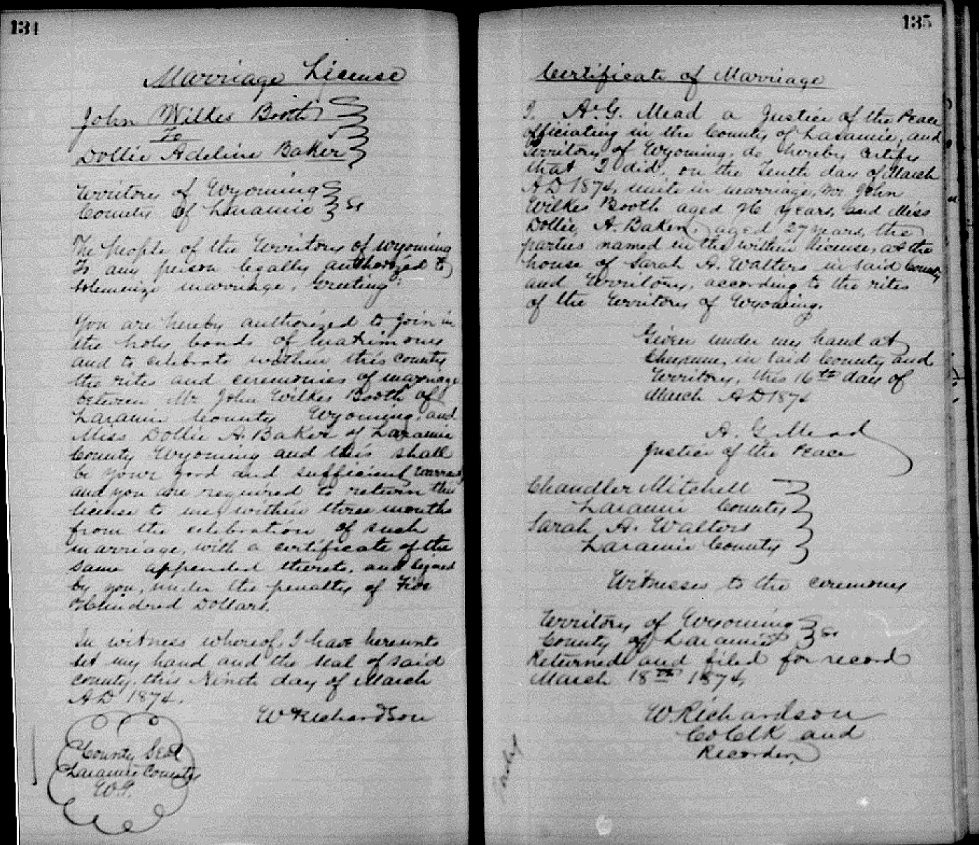 134
Marriage License
John Wilkes Booth
To
Dollie Adeline Baker
Territory of Wyoming
County of Laramie ss
The people of the Territory of Wyoming
To any person legally authorized to
solemnize marriage, Greeting:
You are hereby authorized to join in
the holy bonds of matrimony
and to celebrate within this county
the rites and ceremonies of marriage
between Mr John Wilkes Booth of
Laramie County Wyoming, and
Miss Dollie A. Baker of Laramie
County Wyoming and this shall
be your good and sufficient
and you are required to return this
license to me within three months
from the celebration of such
marriage, with a certificate of the
same appended thereto, and signed
by you, under the penalty of Five
Hundred Dollars.
In witness whereof, I have hereunto
set my hand and the seal of said
county, this Ninth day of March
AD 1874.
W Richardson
County Seal
Laramie County
W.T.
135
Certificate of Marriage
I A. G. Mead a Justice of the Peace
officiating in the County of Laramie, and
Territory of Wyoming, do hereby certify
that I did, on the Tenth day of March
AD 1874, unite in marriage, Mr John
Wilkes Booth aged 26 years, and Miss
Dollie A. Baker, aged 27 years, the
parties named in the within license, at the
house of Sarah A. Walters in said County
and Territory, according to the rites
of the Territory of Wyoming.
Given under my hand at
Cheyenne, in said County and
Territory, this 16th day of
March AD 1874
A. G. Mead
Justice of the Peace
Chandler Mitchell
Laramie County
Sarah A. Walters
Laramie County
Witnesses to the ceremony
Territory of Wyoming
County of Laramie ss
Returned and filed for record
March 18th 1874,
W Richardson
Co Clk and
Recorder